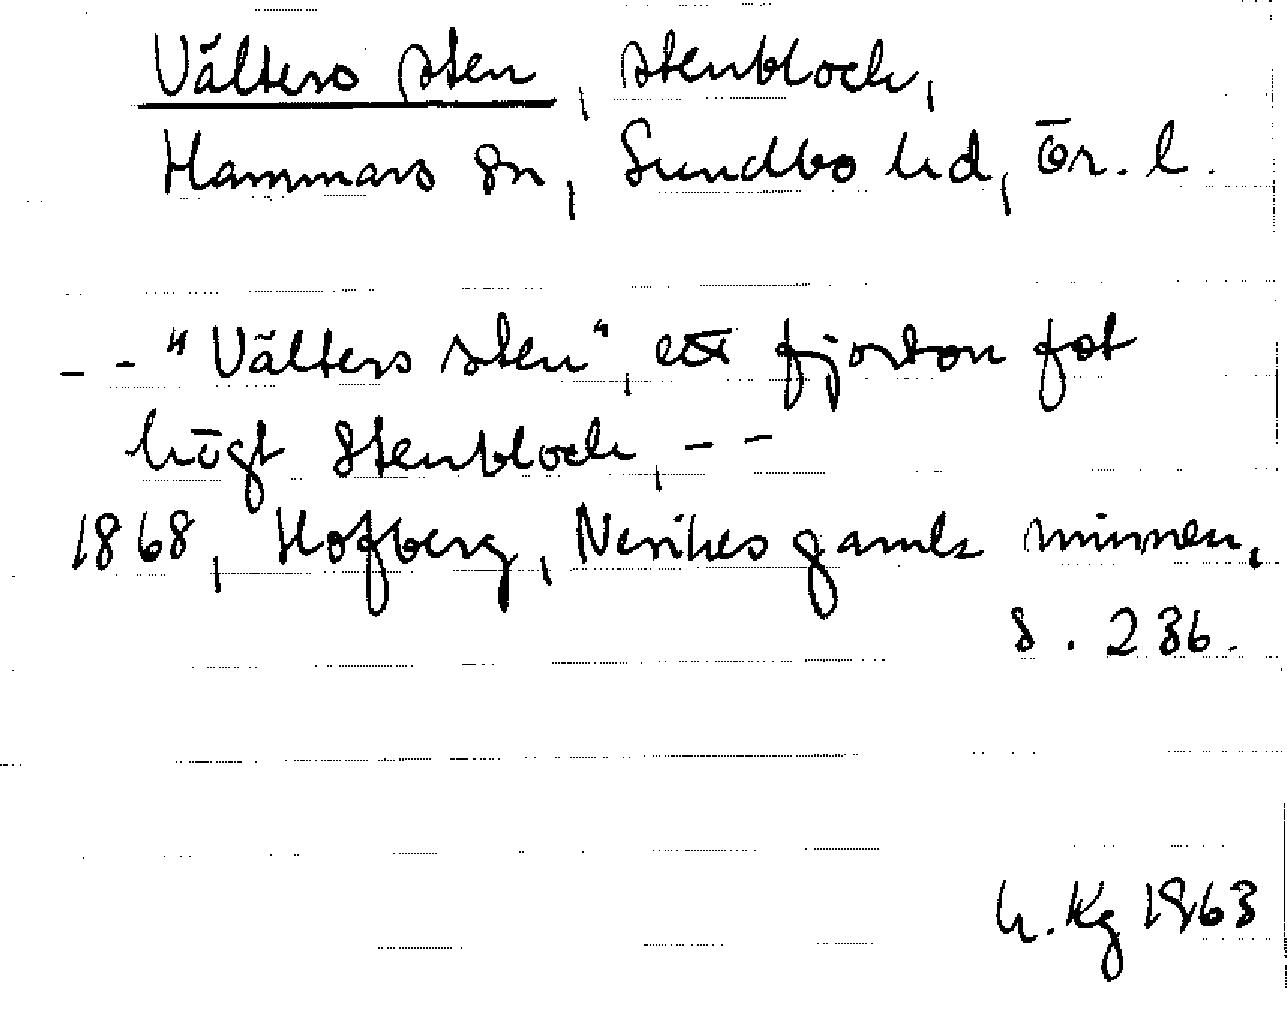 Välters sten, stenblock,
Hammars sn, Sundbo hd, Ör. l.
- - "Välters sten", ett fjorton fot
högt stenblock, - -
1868, Hofberg, Nerikes gamla minnen,
s. 236.
h. Kg 1963